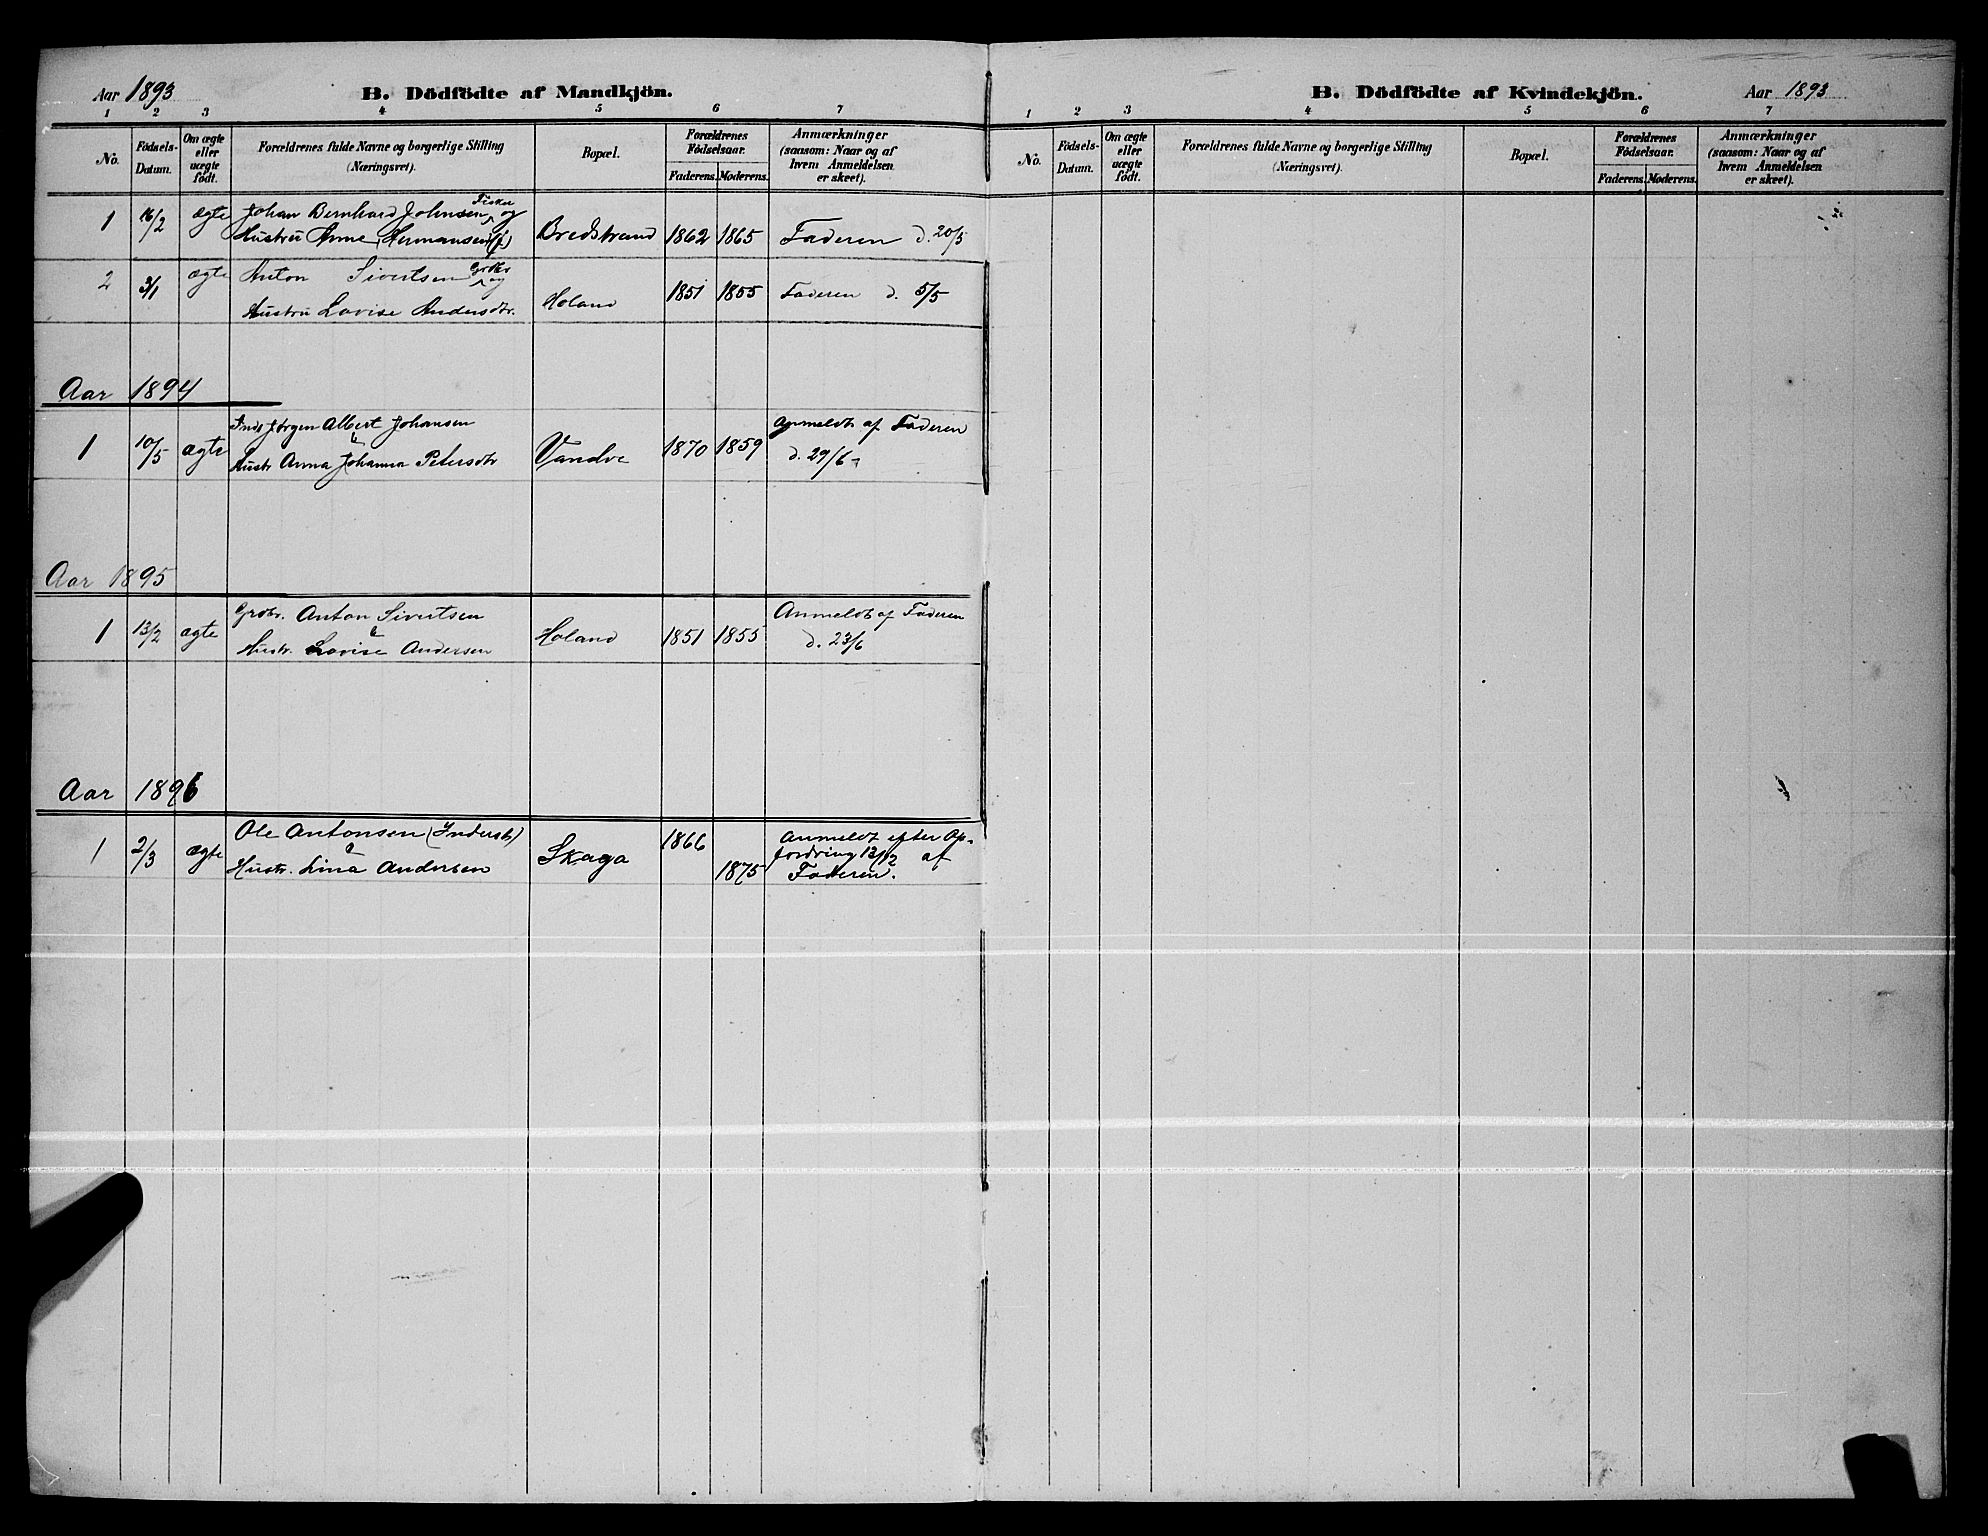 Aar 1893
B. Dödfödte af Mandkjön.
1 2 3 4 5 6 7
No.
Födsels-
Datum.
Om ægte
eller
uægte
födt.
Forældrenes fulde Navne og borgerlige Stilling
(Næringsvei).
Bopæl.
Forældrenes
Födselsaar.
Faderens. Moderens.
Anmærkninger
(saasom: Naar og af
hvem Anmeldelsen
er skeet).
Fisker
1 16/2 ægte Johan Bernhard Johnsen og
Hustru Anne Hermansen Bredstrand 1862 1865 Faderen d. 20/5
2 3/1 ægte Anton Sivertsen Grdbr og
Hustru Lovise Andersdtr. Holand 1851 1855 Faderen d. 5/5
Aar 1894
Inds Jørgen Albert Johansen Anmeldt af Faderen
1 10/5 ægte & Vandve 1870 1859
Hustr Anna Johanna Petersdtr d. 29/6
Aar 1895
Grdbr. Anton Sivertsen Anmeldt af Faderen
1 13/2 ægte & Holand 1851 1855
Hustr. Lovise Andersen d. 23/6
Aar 1896
Ole Antonsen (Inderst) 1866 Anmeldt efter Op-
1 2/3 ægte & Skaga fordring 13/12 af
Hustr. Lina Andersen 1875 Faderen.
B. Dödfödte af Kvindekjön.
Aar 1893
1 2 3 4 5 6 7
No.
Födsels-
Datum.
Om ægte
eller
uægte
födt.
Forældrenes fulde Navne og borgerlige Stilling
(Næringsvei).
Bopæl.
Forældrenes
Födselsaar.
Faderens. Moderens.
Anmærkninger
(saasom: Naar og af
hvem Anmeldelsen
er skeet).